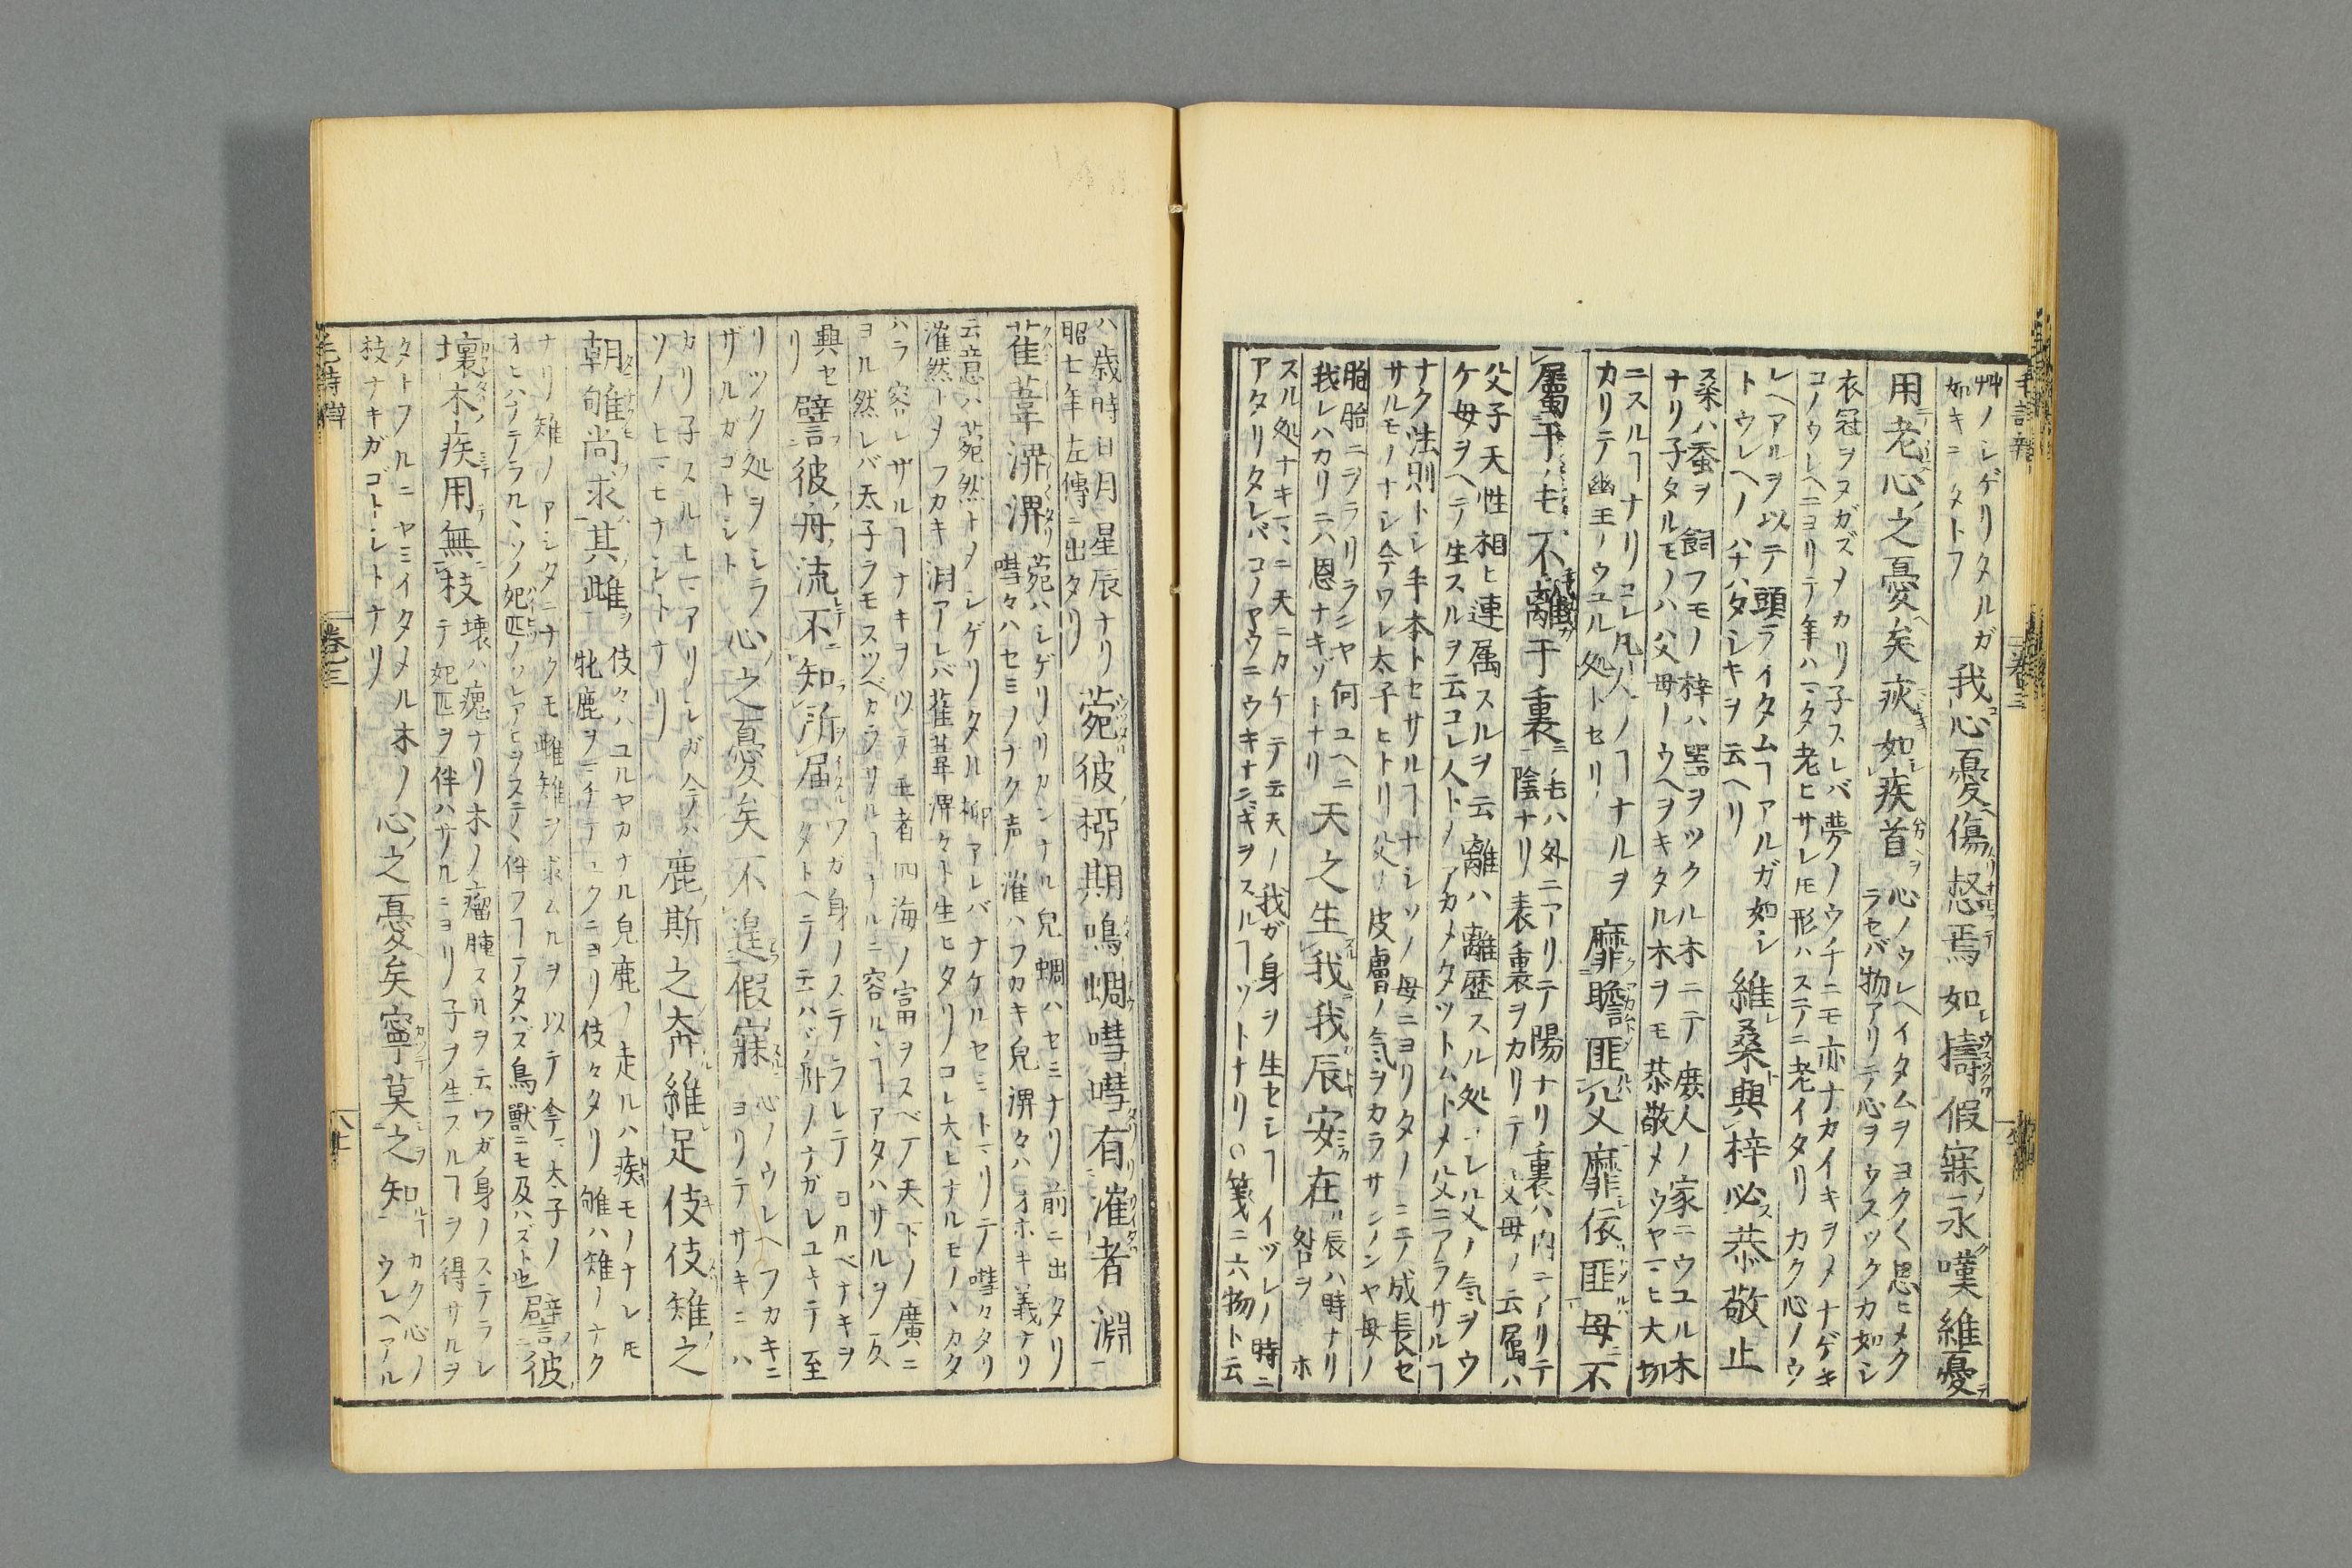 艸ノシゲリタルガ
如キニタトフ
我心憂傷惄焉如擣假寐永嘆維憂
用老心之憂矣疢如疾首
心ノウレヘイタムヲヨクく思ヒメク
ラセバ物アリテ心ヲウスツクカ如シ
衣冠ヲヌガズメカリ子スレバ夢ノウチニモ亦ナカイキヲメナゲキ
コノウレヘニヨリテ年ハマタ老ヒサレ𪜈形ハステニ老イタリカク心ノウ
レヘアルヲ以テ頭ライタムヿアルガ如シ
トウレヘノハナハタシキヲ云ヘリ
維桑與梓必恭敬止
桑ハ蚕ヲ飼フモノ梓ハ噐ヲツクル木ニテ庶人ノ家ニウユル木
ナリ子タルモノハ父母ノウヘヲキタル木ヲモ恭敬メウヤマヒ大切
ニスルヿナリコレ凡人ノヿナルヲ
カリテ幽王ノウユル処トセリ
靡瞻匪父靡依匪母不
屬于毛不離于裏
毛ハ外ニアリテ陽ナリ裏ハ内ニアリテ
陰ナリ表裏ヲカリテ父母ノ云属ハ
父子天性相ヒ連属スルヲ云離ハ離歴スル処コレ父ノ気ヲウ
ケ母ヲヘテ生スルヲ云コレ人トメアカメタツトムトメ父ニアラサルヿ
ナク法則トシ手本トセサルヿナシソノ母ニヨリタノミテ成長セ
サルモノナシ今ワレ太子ヒトリ父ノ皮膚ノ気ヲカラサシノンヤ母ノ
胞胎ニヲラリラシヤ何ユヘニ
我レハカリニハ恩ナキゾトナリ
天之生我我辰安在
辰ハ時ナリ
咎ヲホ
スル処ナキマヽニ天ニカケテ云天ノ我ガ身ヲ生セシヿイヅレノ時ニ
アタリタレバコノヤウニウキナンギヲスルヿソトナリ○箋ニ六物ト云
ハ歳時日月星辰ナリ
昭七年左傳ニ出タリ
菀彼柳斯鳴蜩嘒嘒有漼者淵
萑葦淠淠
菀ハシゲリリカンナル皃蜩ハセミナリ前ニ出タリ
嘒々ハセミノナク声漼ハフカキ皃淠々ハオホキ義ナリ
云意ハ菀然トメシゲリタル柳アレバナケルセミトマリテ嘒々タリ
漼然トメフカキ渕アレバ萑葦淠々ト生ヒタリコレ大ヒナルモノヽカタ
ハラ容レザルヿナキヲツテ王者四海ノ富ヲスベテ天下ノ廣ニ
ヨル然レバ太子ラモスツベカラサルヿナルニ容ルヽヿアタハサルヲ
與セリ
譬彼舟流不知所届
ワガ身ノステラレテヨルベナキヲ
タトヘテノ云ハヾ舟ノナガレユキテ至
リツク処ヲシラ
ザルガコトシト
心之憂矣不遑假寐
心ノウレヘフカキニ
ヨリテサキニハ
カリ子スルヒマアリシガ今ハ
ソノヒマモナシトナリ
鹿斯之奔維足伎伎雉之
朝雊尚求其雌
伎々ハユルヤカナル皃鹿ノ走ルハ疾モノナレ𪜈
牝鹿ヲマチテユクニヨリ伎々タリ雊ハ雉ノナク
ナリ雉ノアシタニナクモ雌雉ヲ求ムルヲ以テ今マ太子ノ
鳥獣ニモ及ハズト也
譬彼
壞木疾用無枝
壊ハ瘣ナリ木ノ瘤腫スルヲ云ワガ身ノステラレ
テ妃匹ヲ伴ハサルニヨリ子ヲ生フルヿヲ得サルヲ
タトフルニヤミイタメル木ノ
枝ナキガゴトシトナリ
心之憂矣寧莫之知
カク心ノ
ウレヘアル
卷三